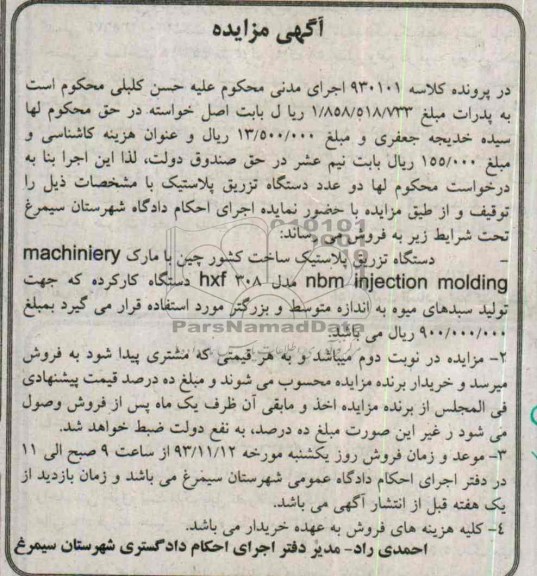 آگهی مزایده
در پرونده کلاسه ۹۳۰۱۰۱ اجرای مدنی محکوم علیه حسن کلبلی محکوم است
به پدرات مبلغ ۱/۸۵۸/۵۱۸/۷۳۳ ریا ل بابت اصل خواسته در حق محکوم لها
سیده خدیجه جعفری و مبلغ ۱۳/۵۰۰/۰۰۰ ریال و عنوان هزینه کاشناسی و
مبلغ ۱۵۵/۰۰۰ ریال بابت نیم عشر در حق صندوق دولت، لذا این اجرا بنا به
درخواست محکوم لها دو عدد دستگاه تزریق پلاستیک با مشخصات ذیل را
توقیف و از طیق مزایده با حضور نماینده اجرای احکام دادگاه شهرستان سیمرغ
تحت شرایط زیر به فروش می رساند:
- دستگاه تزریق پلاستیک ساخت کشور چین با مارک machiniery
nbm injection molding مدل ۳۰۸ hxf دستگاه کارکرده که جهت
تولید سبدهای میوه به اندازه متوسط و بزرگتر مورد استفاده قرار می گیرد بمبلغ
۹۰۰/۰۰۰/۰۰۰ ریال می باشد.
ParsNamadData
۲- مزایده در نوبت دوم میباشد و به هر قیمتی که مشتری پیدا شود به فروش
میرسد و خریدار برنده مزایده محسوب می شوند و مبلغ ده درصد قیمت پیشنهادی
فی المجلس از برنده مزایده اخذ و مابقی آن ظرف یک ماه پس از فروش وصول
می شود ز غیر این صورت مبلغ ده درصد، به نفع دولت ضبط خواهد شد.
۳- موعد و زمان فروش روز یکشنبه مورخه ۹۳/۱۱/۱۲ از ساعت ۹ صبح الی ۱۱
در دفتر اجرای احکام دادگاه عمومی شهرستان سیمرغ می باشد و زمان بازدید از
یک هفته قبل از انتشار آگهی می باشد.
٤- کلیه هزینه های فروش به عهده خریدار می باشد.
احمدی راد- مدیر دفتر اجرای احکام دادگستری شهرستان سیمرغ